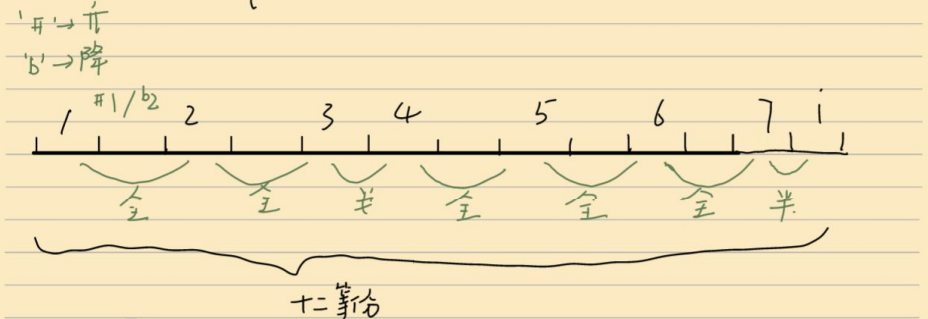 '#'→升
'b'→降
1 #1/b2 2 3 4 5 6 7 i
全 全 半 全 全 全 半
十二等分